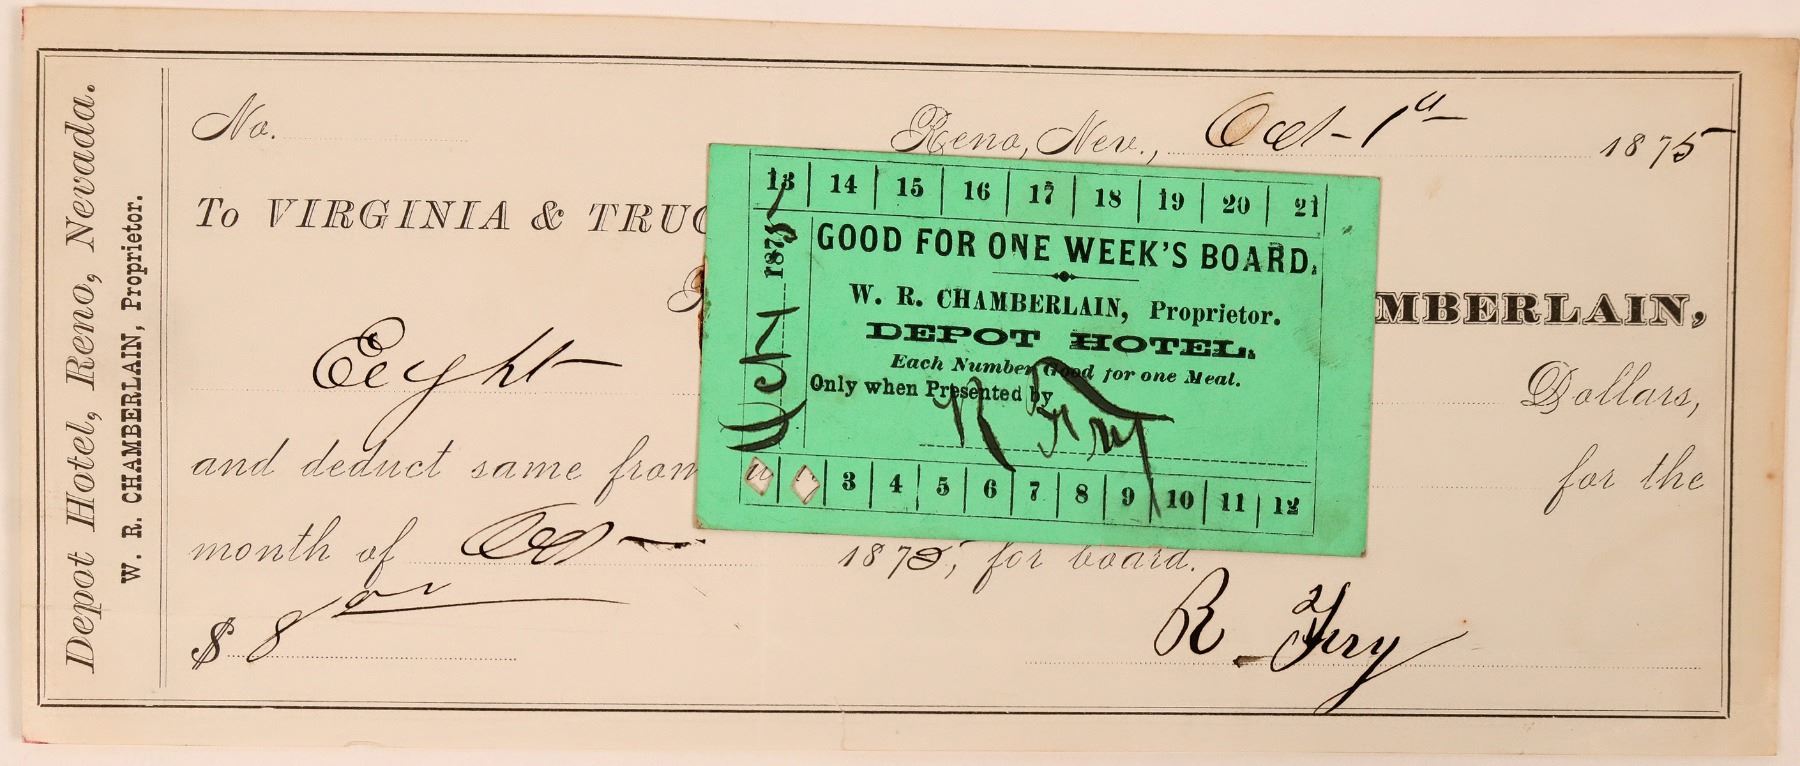 Depot Hotel, Reno, Nevada.
W. R. CHAMBERLAIN, Proprietor.
No.
Reno, Nev., Oct 1st 1875
To VIRGINIA & TRUC
MBERLAIN,
Eeight
Dollars,
and deduct same from
for the
month of Oct 1875, for board.
$ 8
R. Fry
13 14 15 16 17 18 19 20 21
Oct 1 1875
GOOD FOR ONE WEEK'S BOARD.
W. R. CHAMBERLAIN, Proprietor.
DEPOT HOTEL.
Each Number Good for one Meal.
Only when Presented by
R Fry
3 4 5 6 7 8 9 10 11 12